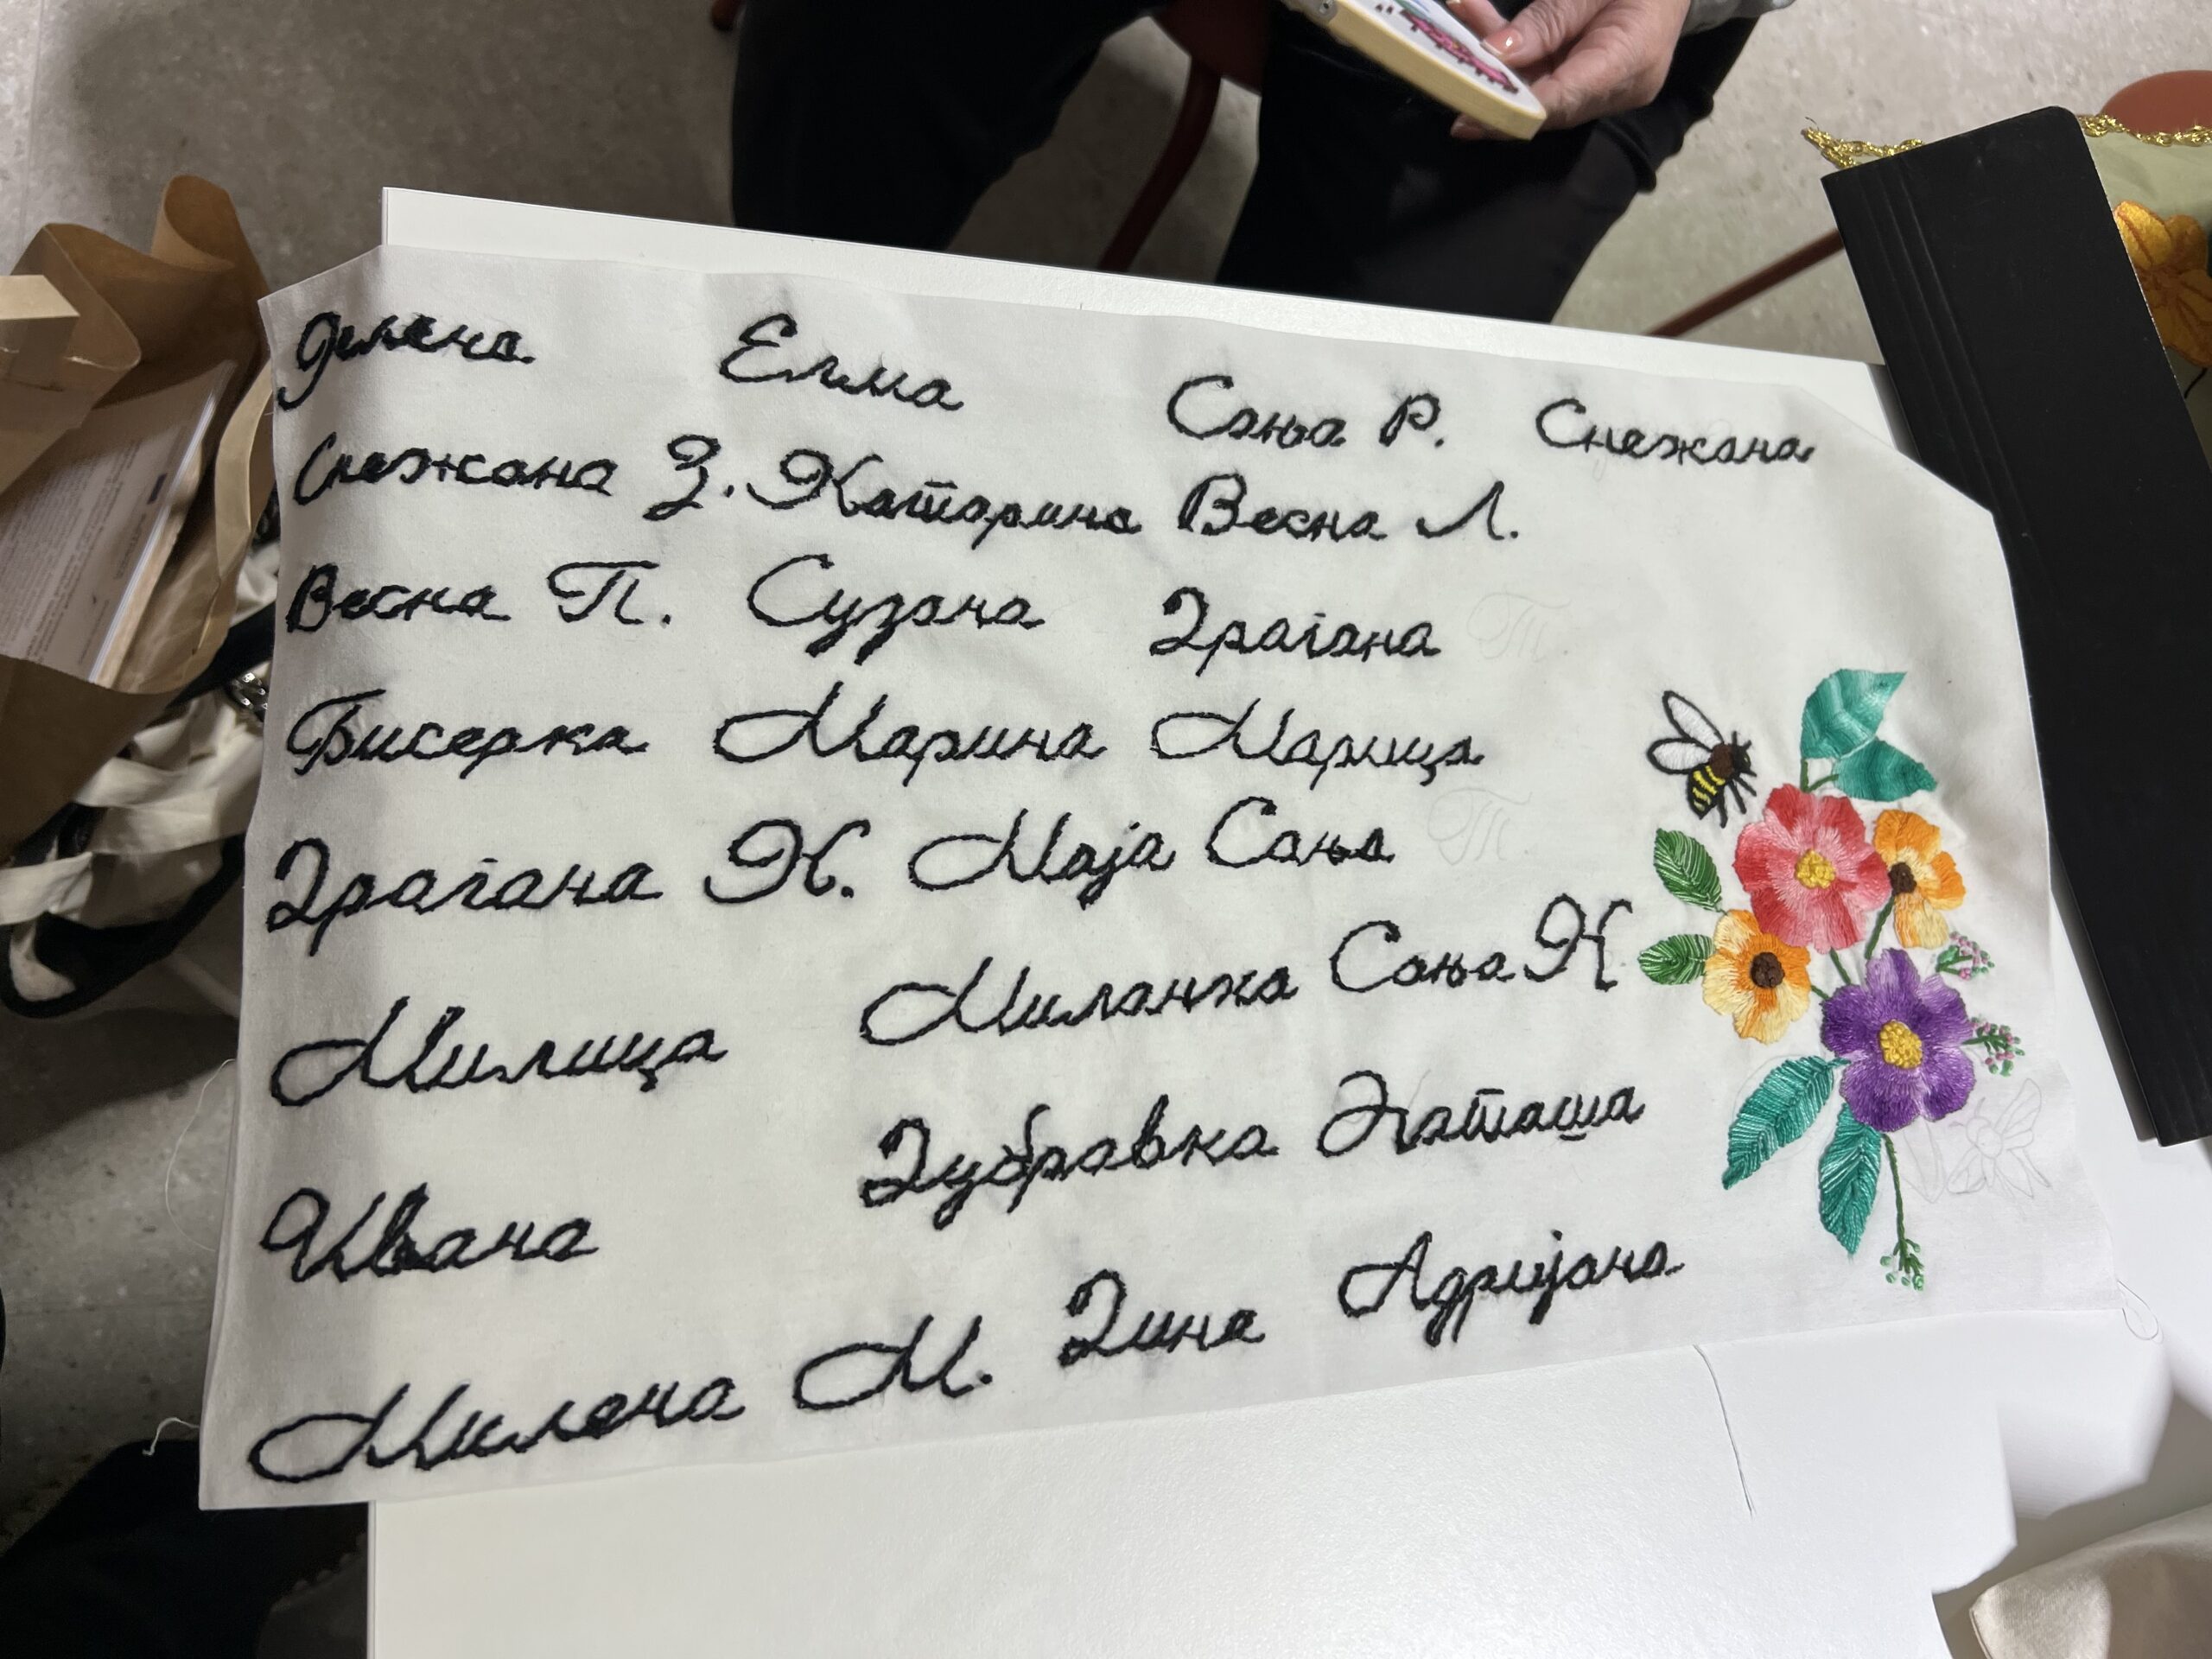 Јелена Елма Сања Р. Снежана
Снежана З. Катарина Весна Л.
Весна П. Сузана Драгана Т.
Бисерка Марина Марица
Драгана К. Маја Сања Т.
Милица Миланка Сања К
Ивана Дубравка Наташа
Милена М. Дина Адријана